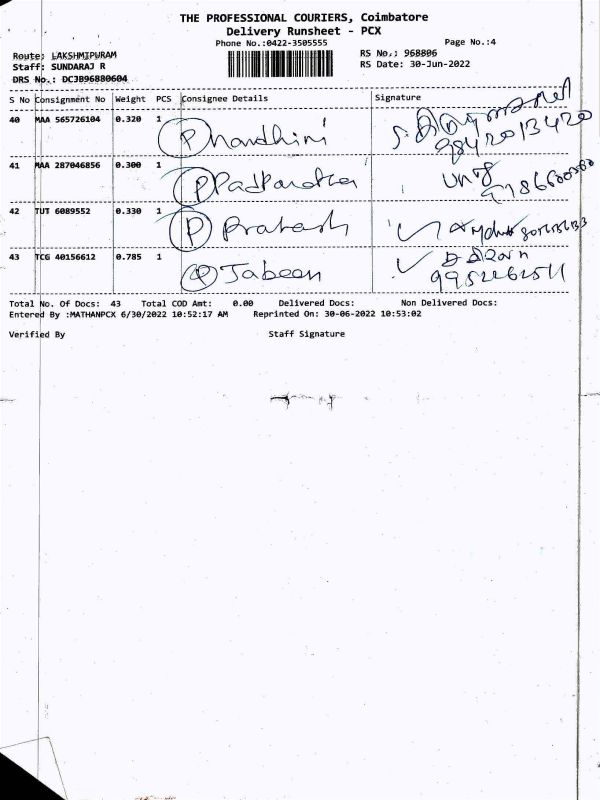 THE PROFESSIONAL COURIERS, Coimbatore
Delivery Runsheet - PCX
Phone No.:0422-3505555 Page No.:4
Route: LAKSHMIPURAM RS No.: 968806
Staff: SUNDARAJ R RS Date: 30-Jun-2022
DRS No.: DCJB96880604
S No Consignment No Weight PCS Consignee Details Signature
40 MAA 565726104 0.320 1 P Nandhini 9842013420
41 MAA 287046856 0.300 1 P
42 TUT 6089552 0.330 1 P Prakash
43 TCG 40156612 0.785 1 P Jabeen 9952262511
Total No. Of Docs: 43 Total COD Amt: 0.00 Delivered Docs: Non Delivered Docs:
Entered By :MATHANPCX 6/30/2022 10:52:17 AM Reprinted On: 30-06-2022 10:53:02
Verified By Staff Signature